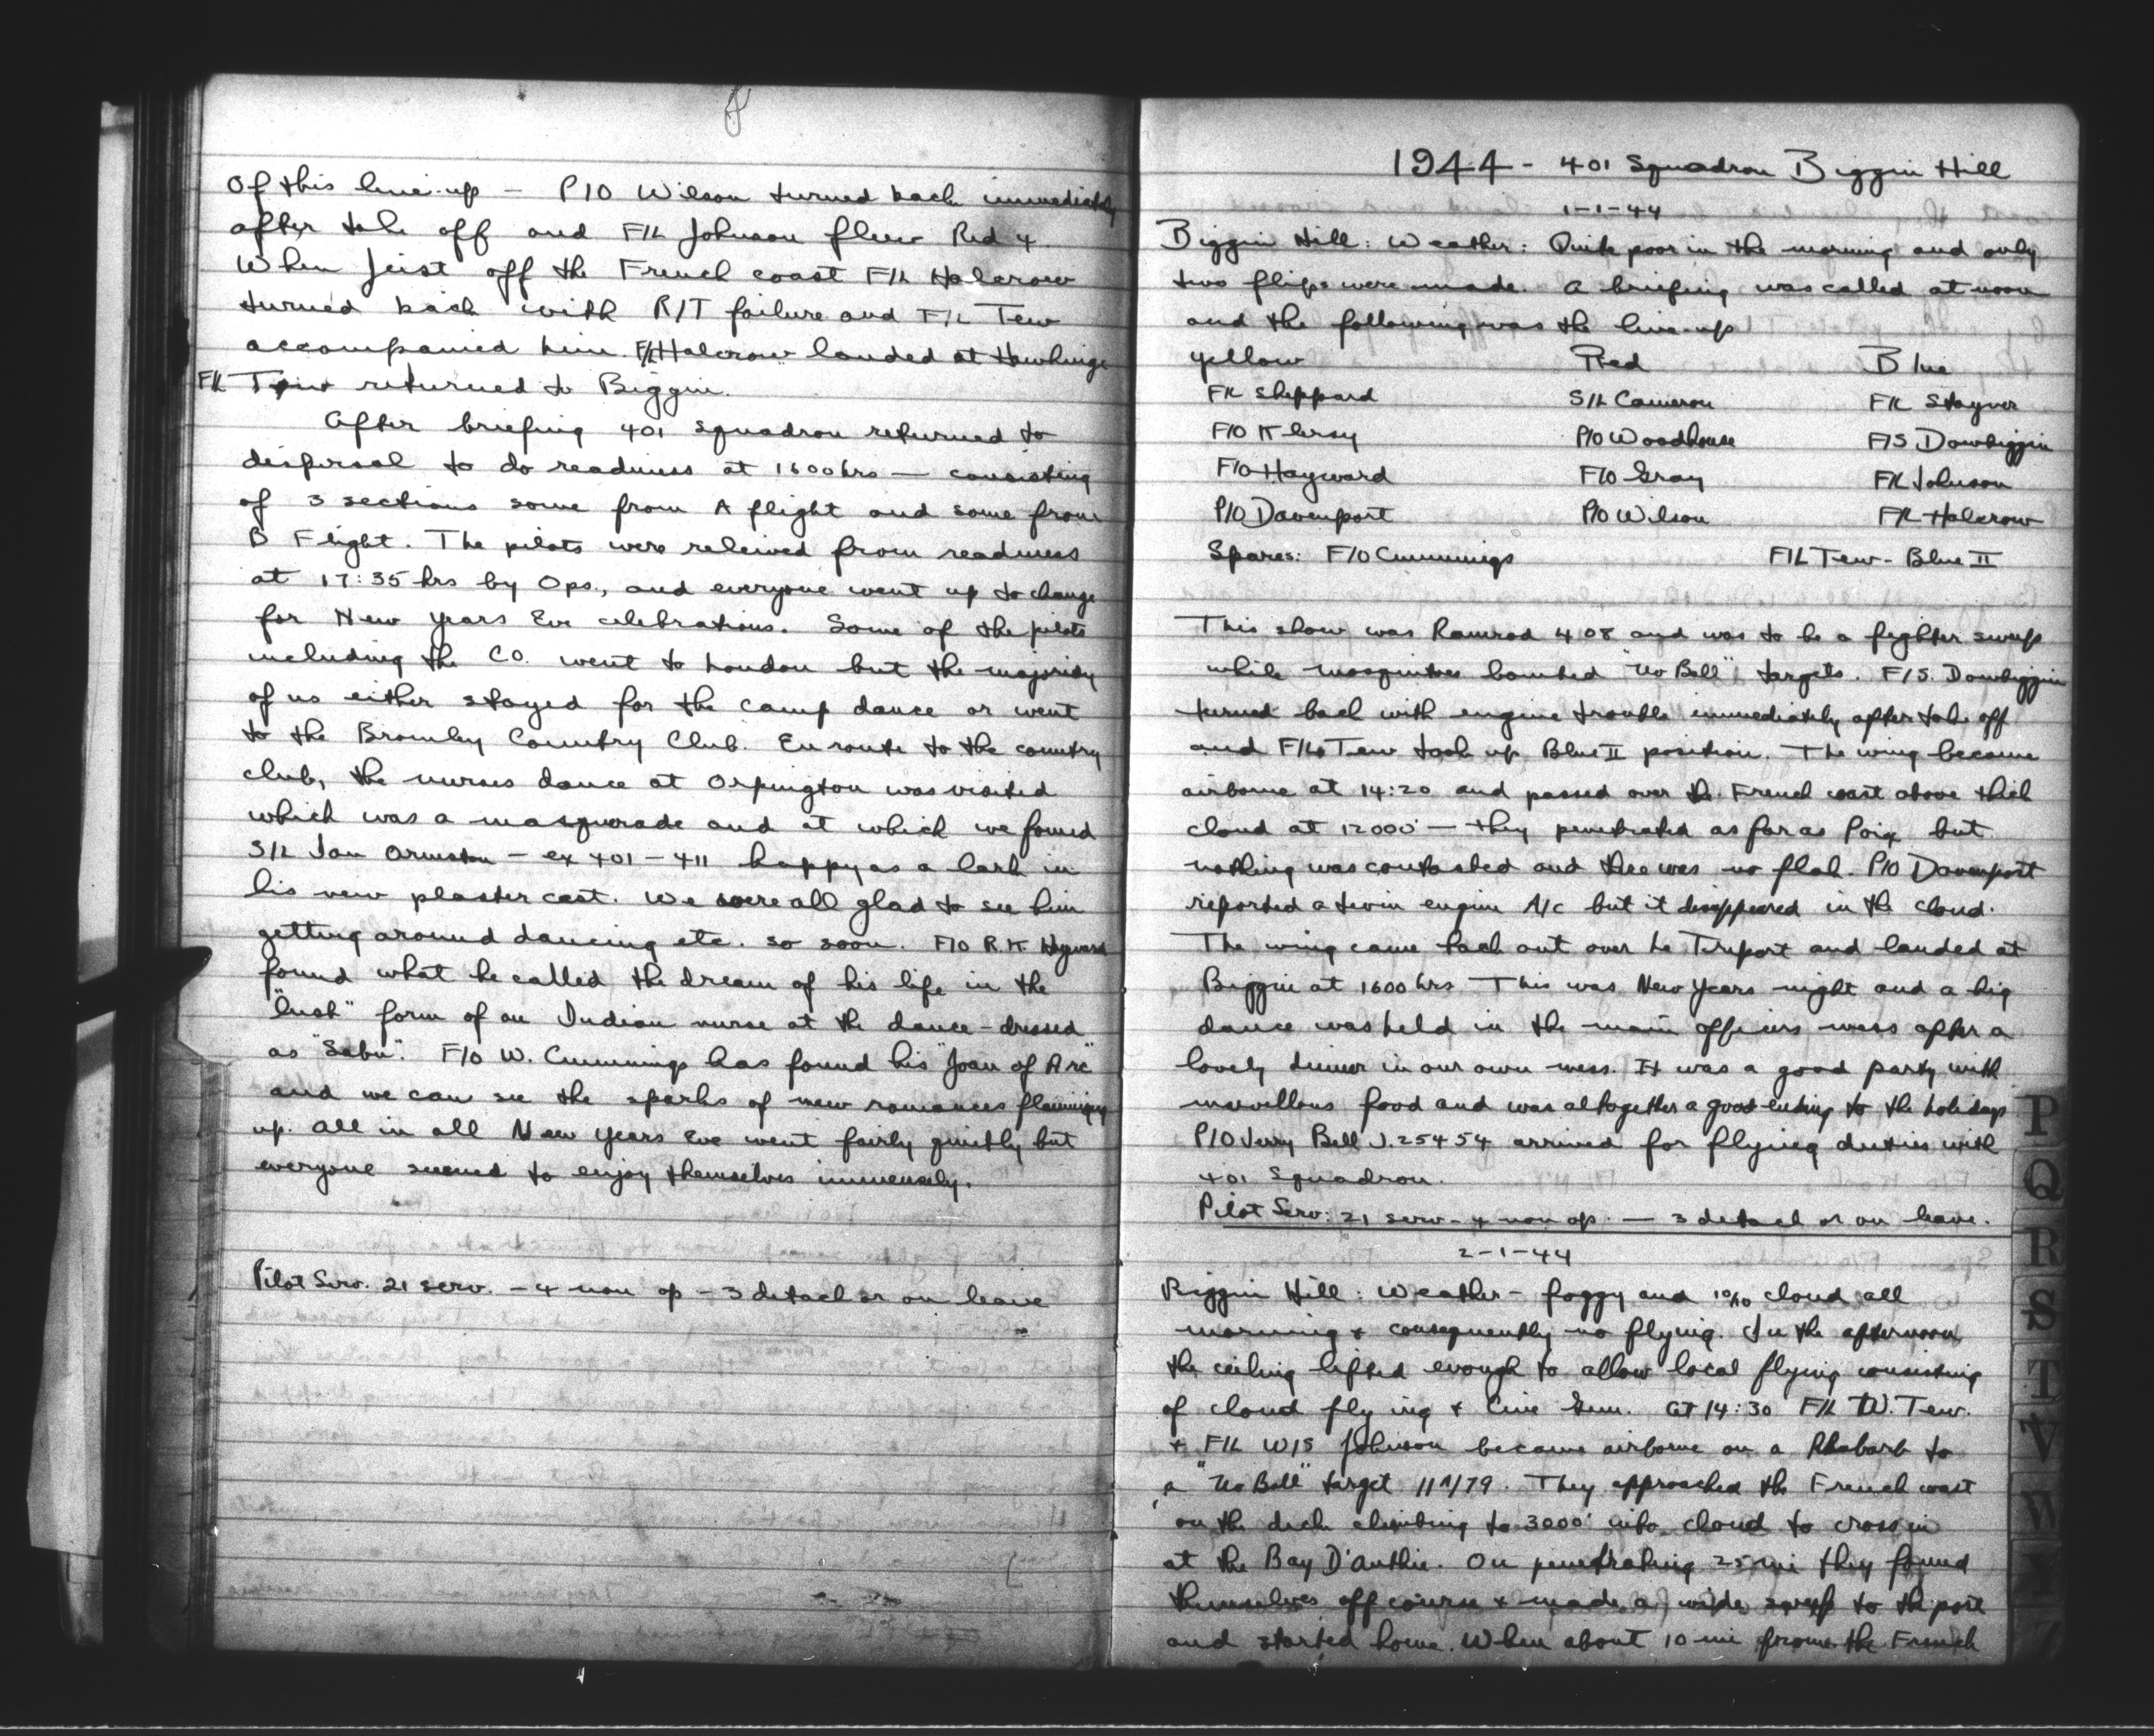 Of this line-up — P/O Wilson turned back immediately
after take off and F/L Johnson flew Red 4
When just off the French coast F/L Halcrow
turned back with R/T failure and F/L Tew
accompanied him. F/L Halcrow landed at Hawkinge
F/L Tew returned to Biggin.
After briefing 401 Squadron returned to
dispersal to do readiness at 1600 hrs — consisting
of 3 sections some from A flight and some from
B Flight. The pilots were releived from readiness
at 17:35 hrs by Ops., and everyone went up to change
for New Years Eve celebrations. Some of the pilots
including the CO. went to London but the majority
of us either stayed for the camp dance or went
to the Bromley Country Club. En route to the country
club, the nurses dance at Orpington was visited
which was a masquerade and at which we found
S/L Ian Ormston - ex 401 - 411 happy as a lark in
his new plaster cast. We were all glad to see him
getting around dancing etc. so soon. F/O R.K. Hayward
found what he called the dream of his life in the
"lush" form of an Indian nurse at the dance - dressed
as "Sabu". F/O W. Cummings has found his "Joan of Arc"
and we can see the sparks of new romances flaming
up. All in all New Years Eve went fairly quietly but
everyone seemed to enjoy themselves immensely.
Pilot Serv. 21 serv. - 4 non op - 3 detach or on leave
1944 - 401 Squadron Biggin Hill
1-1-44
Biggin Hill: Weather: Quite poor in the morning and only
two flips were made. A briefing was called at noon
and the following was the line-up
Yellow Red Blue
F/L Sheppard S/L Cameron F/L Stayner
F/O Klersy P/O Woodhouse F/S Dowbiggin
F/O Hayward F/O Gray F/L Johnson
P/O Davenport P/O Wilson F/L Halcrow
Spares: F/O Cummings F/L Tew - Blue II
This show was Ramrod 408 and was to be a fighter sweep
while mosquitoes bombed "No Ball" targets. F/S. Dowbiggin
turned back with engine trouble immediately after take off
and F/L Tew took up Blue II position. The wing became
airborne at 14:20 and passed over the French coast above thick
cloud at 12000' — they penetrated as far as Poix but
nothing was contacted and there was no flak. P/O Davenport
reported a twin engine A/c but it disappeared in the cloud.
The wing came back out over Le Treport and landed at
Biggin at 1600 hrs This was New Years night and a big
dance was held in the main officers mess after a
lovely dinner in our own mess. It was a good party with
marvellous food and was altogether a good ending to the holidays
P/O Jerry Bell J.25454 arrived for flying duties with
401 Squadron.
Pilot Serv: 21 serv - 4 non op. — 3 detach or on leave.
2-1-44
Biggin Hill: Weather - foggy and 10/10 cloud all
morning & consequently no flying. In the afternoon
the ceiling lifted enough to allow local flying consisting
of cloud flying & Cine Gun. At 14:30 F/L W. Tew.
& F/L Johnson became airborne on a Rhabarb to
a "No Ball" target They approached the French coast
on the deck climbing to 3000' into cloud to cross in
at the Bay D'Authie. On penetrating 25 mi they found
themselves off course & made a wide sweep to the port
and started home. When about 10 mi from the French
P
Q
R
S
T
V
W
Y
Z